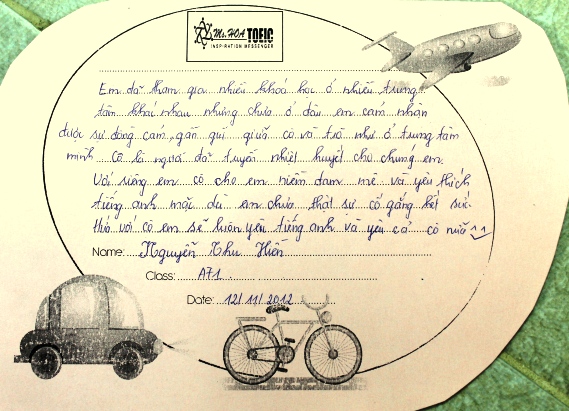 Ms. HOA TOEIC
INSPIRATION MESSENGER
Em đã tham gia nhiều khoá học ở nhiều trung
tâm khác nhau nhưng chưa ở đâu em cảm nhận
được sự đồng cảm, gần gũi giữa cô và trò như ở trung tâm
mình. Cô là người đã truyền nhiệt huyết cho chúng em.
Với riêng em cô cho em niềm đam mê và yêu thích
tiếng anh mặc dù em chưa thật sự cố gắng hết sức.
Hứa với cô em sẽ luôn yêu tiếng anh và yêu cả cô nữa ^^
Name: Nguyễn Thu Hiền
Class: A71
Date: 12/11/2012